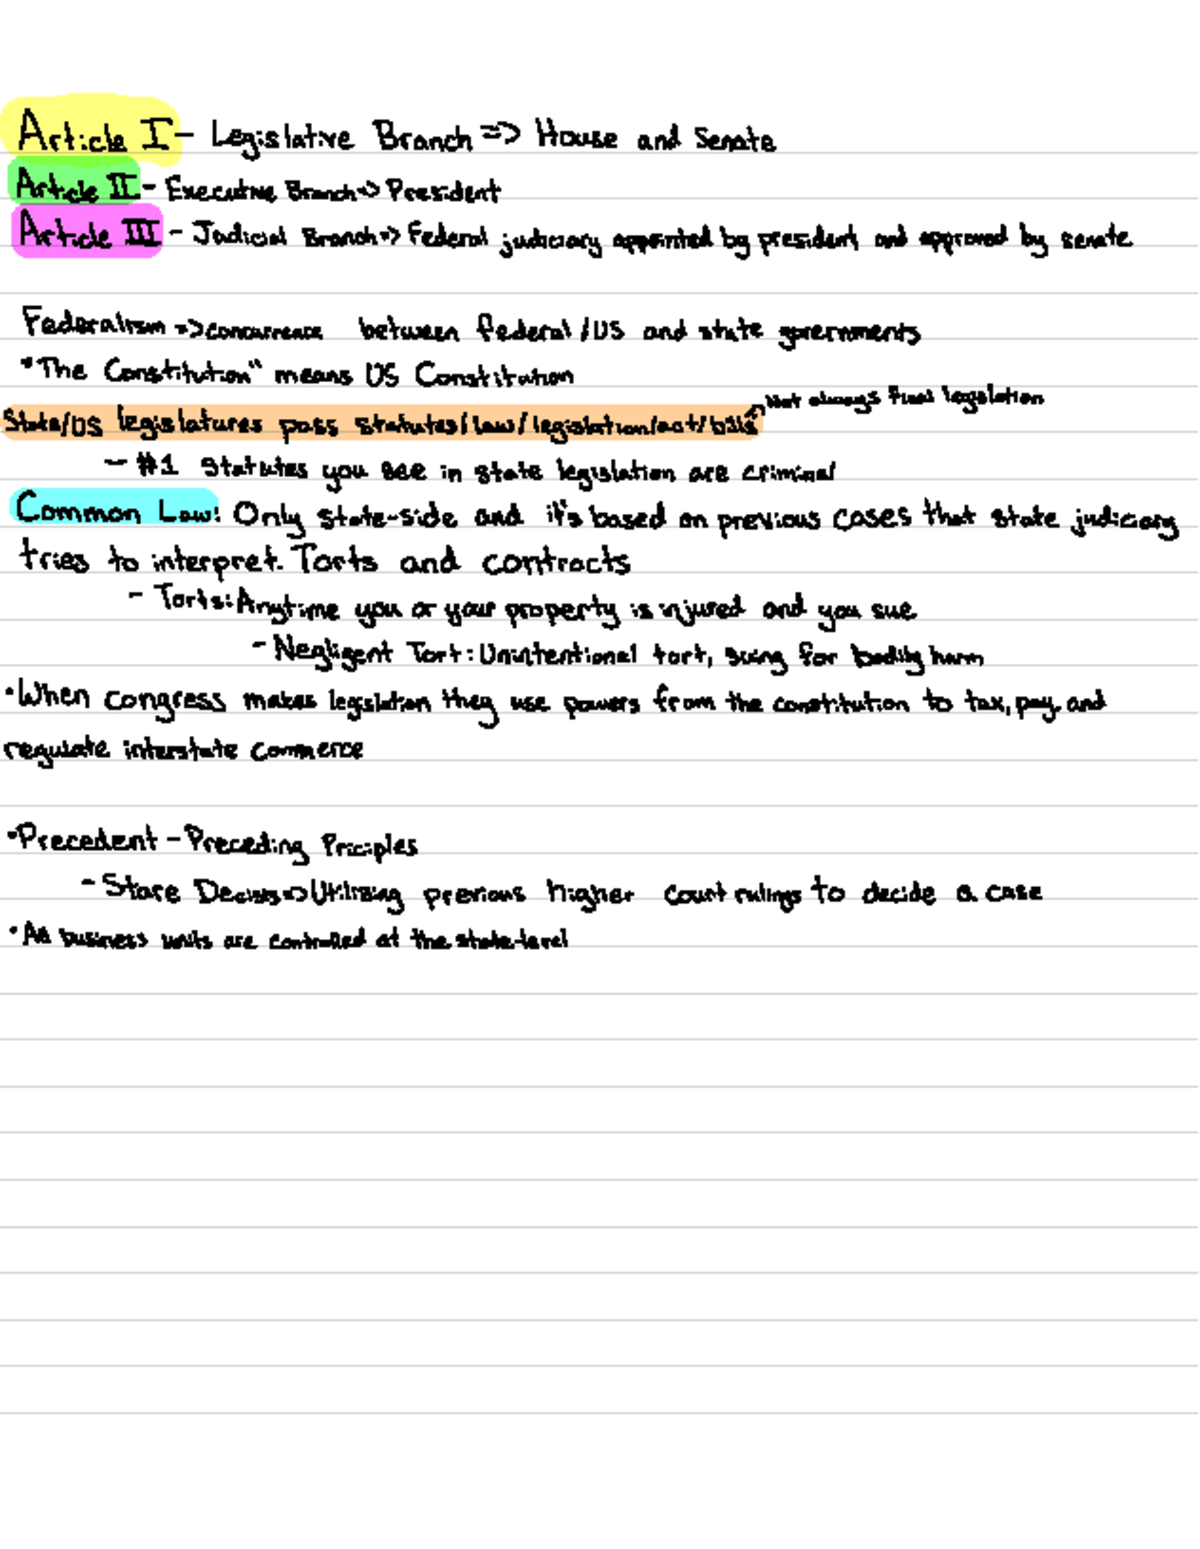 Article I - Legislative Branch => House and Senate
Article II - Executive Branch => President
Article III - Judicial Branch => Federal judiciary appointed by president and approved by senate
Federalism => concurrence between federal/US and state governments
"The Constitution" means US Constitution
Not always final legislation
State/US legislatures pass statutes/law/legislation/act/bills
- #1 Statutes you see in state legislation are criminal
Common Law: Only state-side and it's based on previous cases that state judiciary
tries to interpret. Torts and contracts
- Torts: Anytime you or your property is injured and you sue
- Negligent Tort: Unintentional tort, suing for bodily harm
•When congress makes legislation they use powers from the constitution to tax, pay, and
regulate interstate commerce
•Precedent - Preceding Priciples
- Stare Decisis => Utilizing previous higher court rulings to decide a case
•All business units are controlled at the state-level